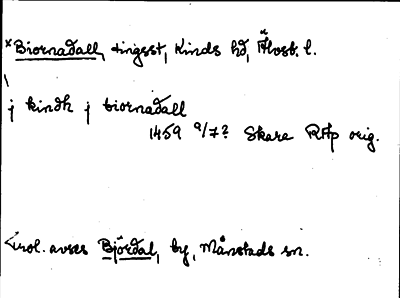 *Biornadall, tingsst, Kinds hd, Älvsb. l.
j kindh j biornadall
1459 9/7? Skara RAp orig.
Trol. avses Björdal, by, Månstads sn.